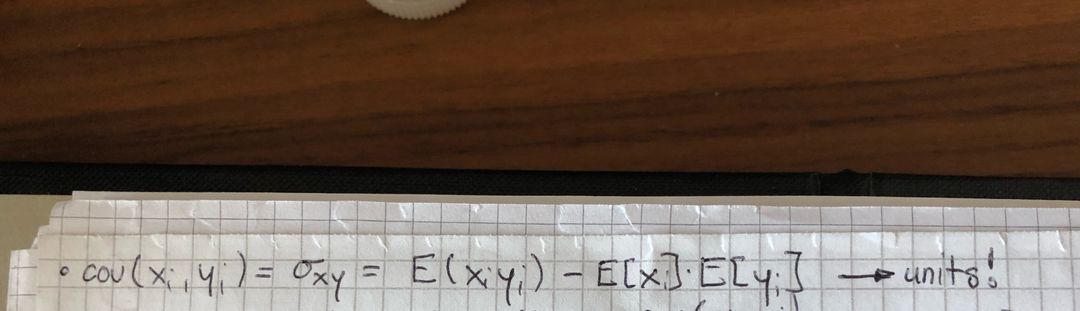 • cov(xᵢ, yᵢ) = σxy = E(xᵢyᵢ) − E[xᵢ]·E[yᵢ] → units!